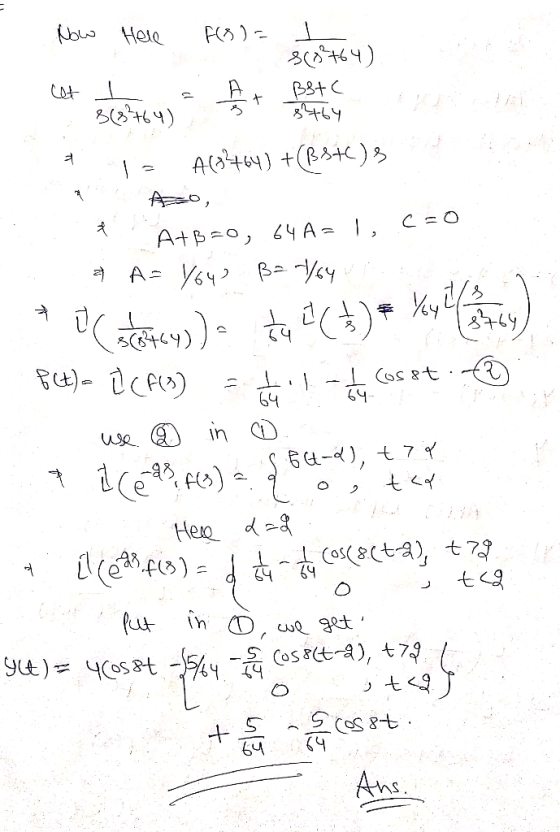 Now Here f(s) = 1/(s(s²+64))
Let 1/(s(s²+64)) = A/s + (Bs+C)/(s²+64)
⇒ 1 = A(s²+64) + (Bs+C)s
⇒ A+B=0, 64A = 1, C = 0
⇒ A = 1/64, B = -1/64
⇒ L⁻¹(1/(s(s²+64))) = 1/64 L⁻¹(1/s) - 1/64 L⁻¹(s/(s²+64))
F(t) = L⁻¹(f(s)) = 1/64 · 1 - 1/64 cos 8t. —②
use ② in ①
⇒ L⁻¹(e^-2s, f(s)) = { F(t-α), t > α
0, t < α
Here α = 2
⇒ L⁻¹(e^-2s f(s)) = { 1/64 - 1/64 cos(8(t-2)), t > 2
0, t < 2
Put in ①, we get
y(t) = 4cos8t - { 5/64 - 5/64 cos8(t-2), t > 2
0, t < 2 }
+ 5/64 - 5/64 cos8t.
Ans.